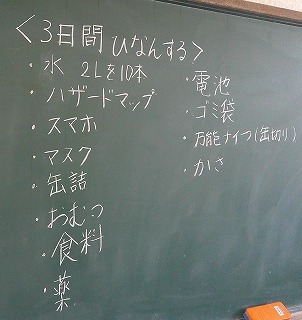 <3日間ひなんする>
・水 2Lを10本
・ハザードマップ
・スマホ
・マスク
・缶詰
・おむつ
・食料
・薬
・電池
・ゴミ袋
・万能ナイフ(缶切り)
・かさ